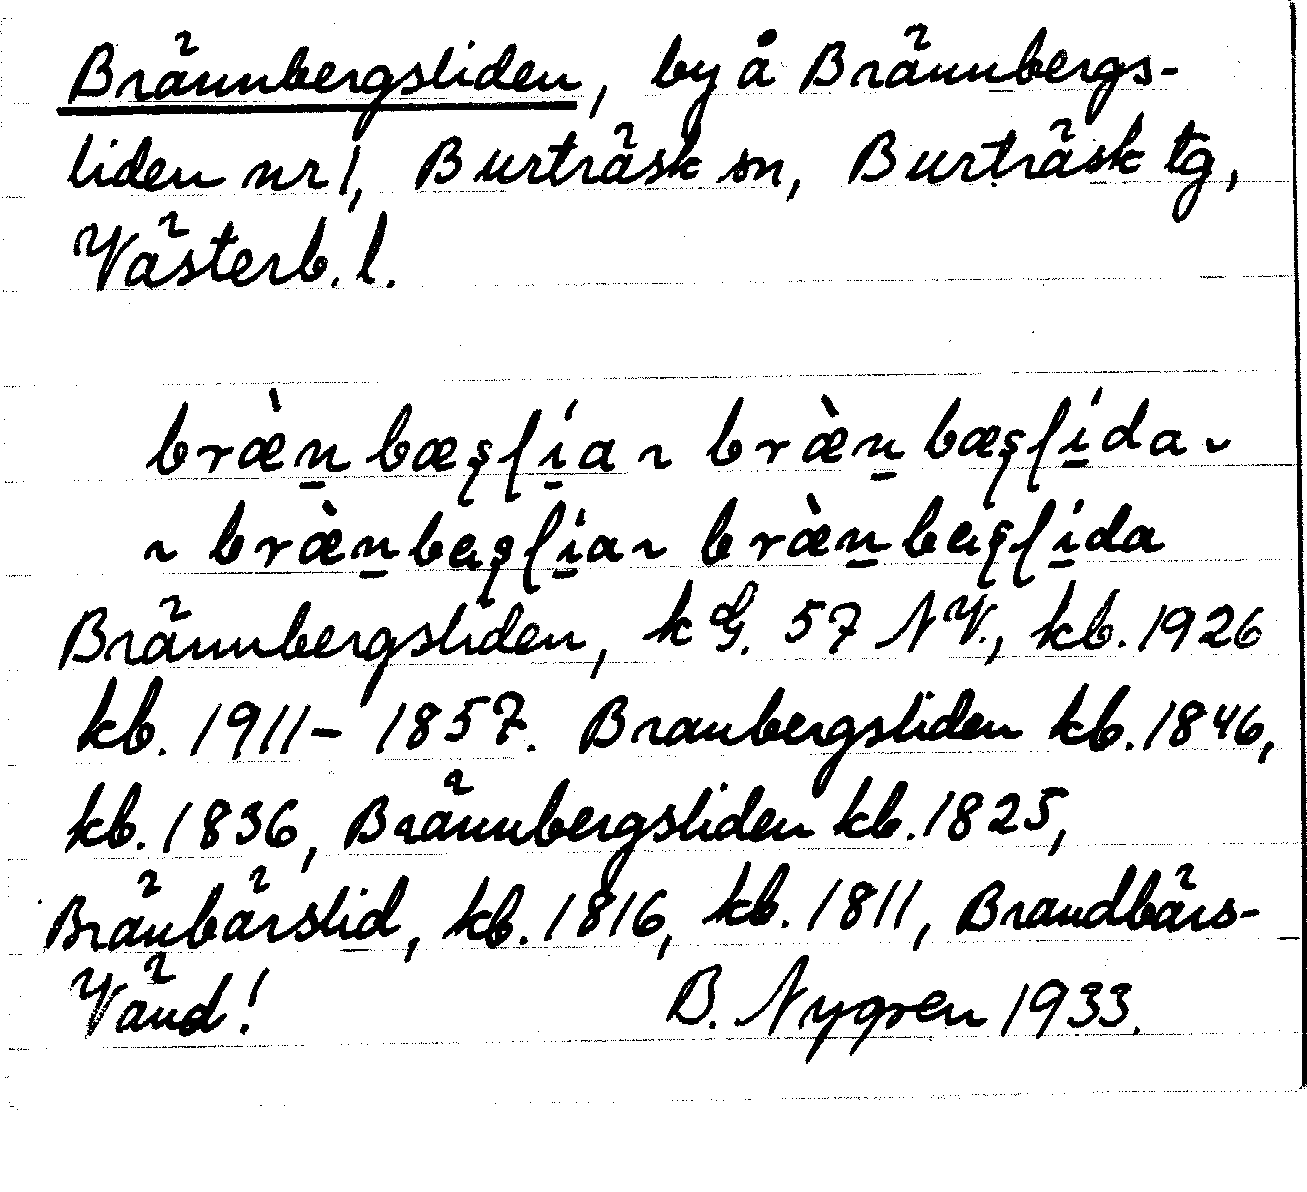 Brännbergsliden, by å Brännbergs-
liden nr 1, Burträsk sn, Burträsk tg,
Västerb. l.
bræ̀n̲bæʂſí̲a ~ bræ̀n̲bæʂſí̲da ~
~ bræ̀n̲beʂſí̲a ~ bræ̀n̲beʂſí̲da
Brännbergsliden, k G. 57 NV., kb. 1926
kb. 1911 - 1857. Branbergsliden kb. 1846,
kb. 1836, Brännbergsliden kb. 1825,
Bränbärslid, kb. 1816, kb. 1811, Brandbärs-
Vänd! B. Nygren 1933.